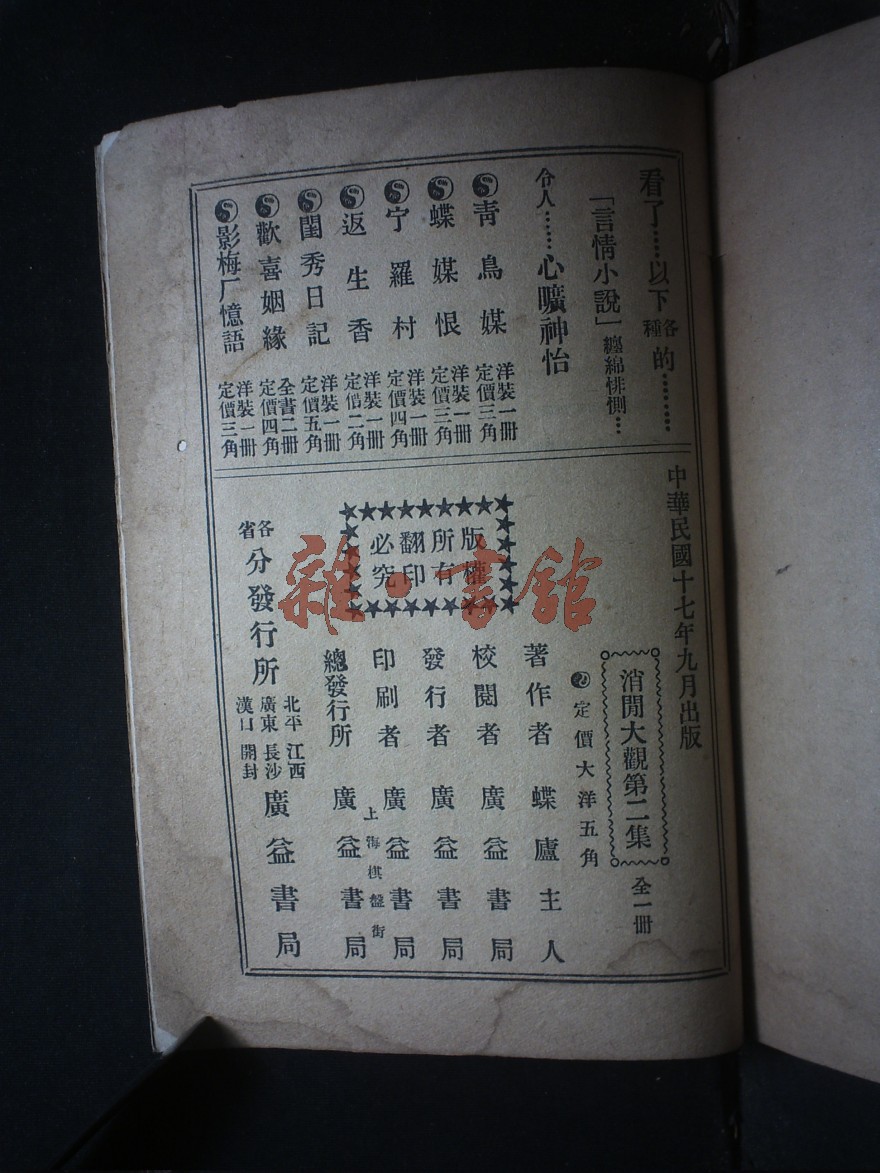 看了……以下各種的………
「言情小說」纏綿悱惻…
令人……心曠神怡
青鳥媒 洋裝一冊 定價三角
蝶媒恨 洋裝一冊 定價三角
宁羅村 洋裝一冊 定價四角
返生香 洋裝一冊 定價二角
閨秀日記 洋裝一冊 定價五角
歡喜姻緣 全書二冊 定價四角
影梅厂憶語 洋裝一冊 定價三角
中華民國十七年九月出版
消閒大觀第二集 全一冊
定價大洋五角
著作者 蝶廬主人
校閱者 廣益書局
發行者 廣益書局
印刷者 廣益書局
上海棋盤街
總發行所 廣益書局
版權
所有
翻印
必究
各省分發行所 北平 江西 廣東 長沙 漢口 開封 廣益書局
雜·書館